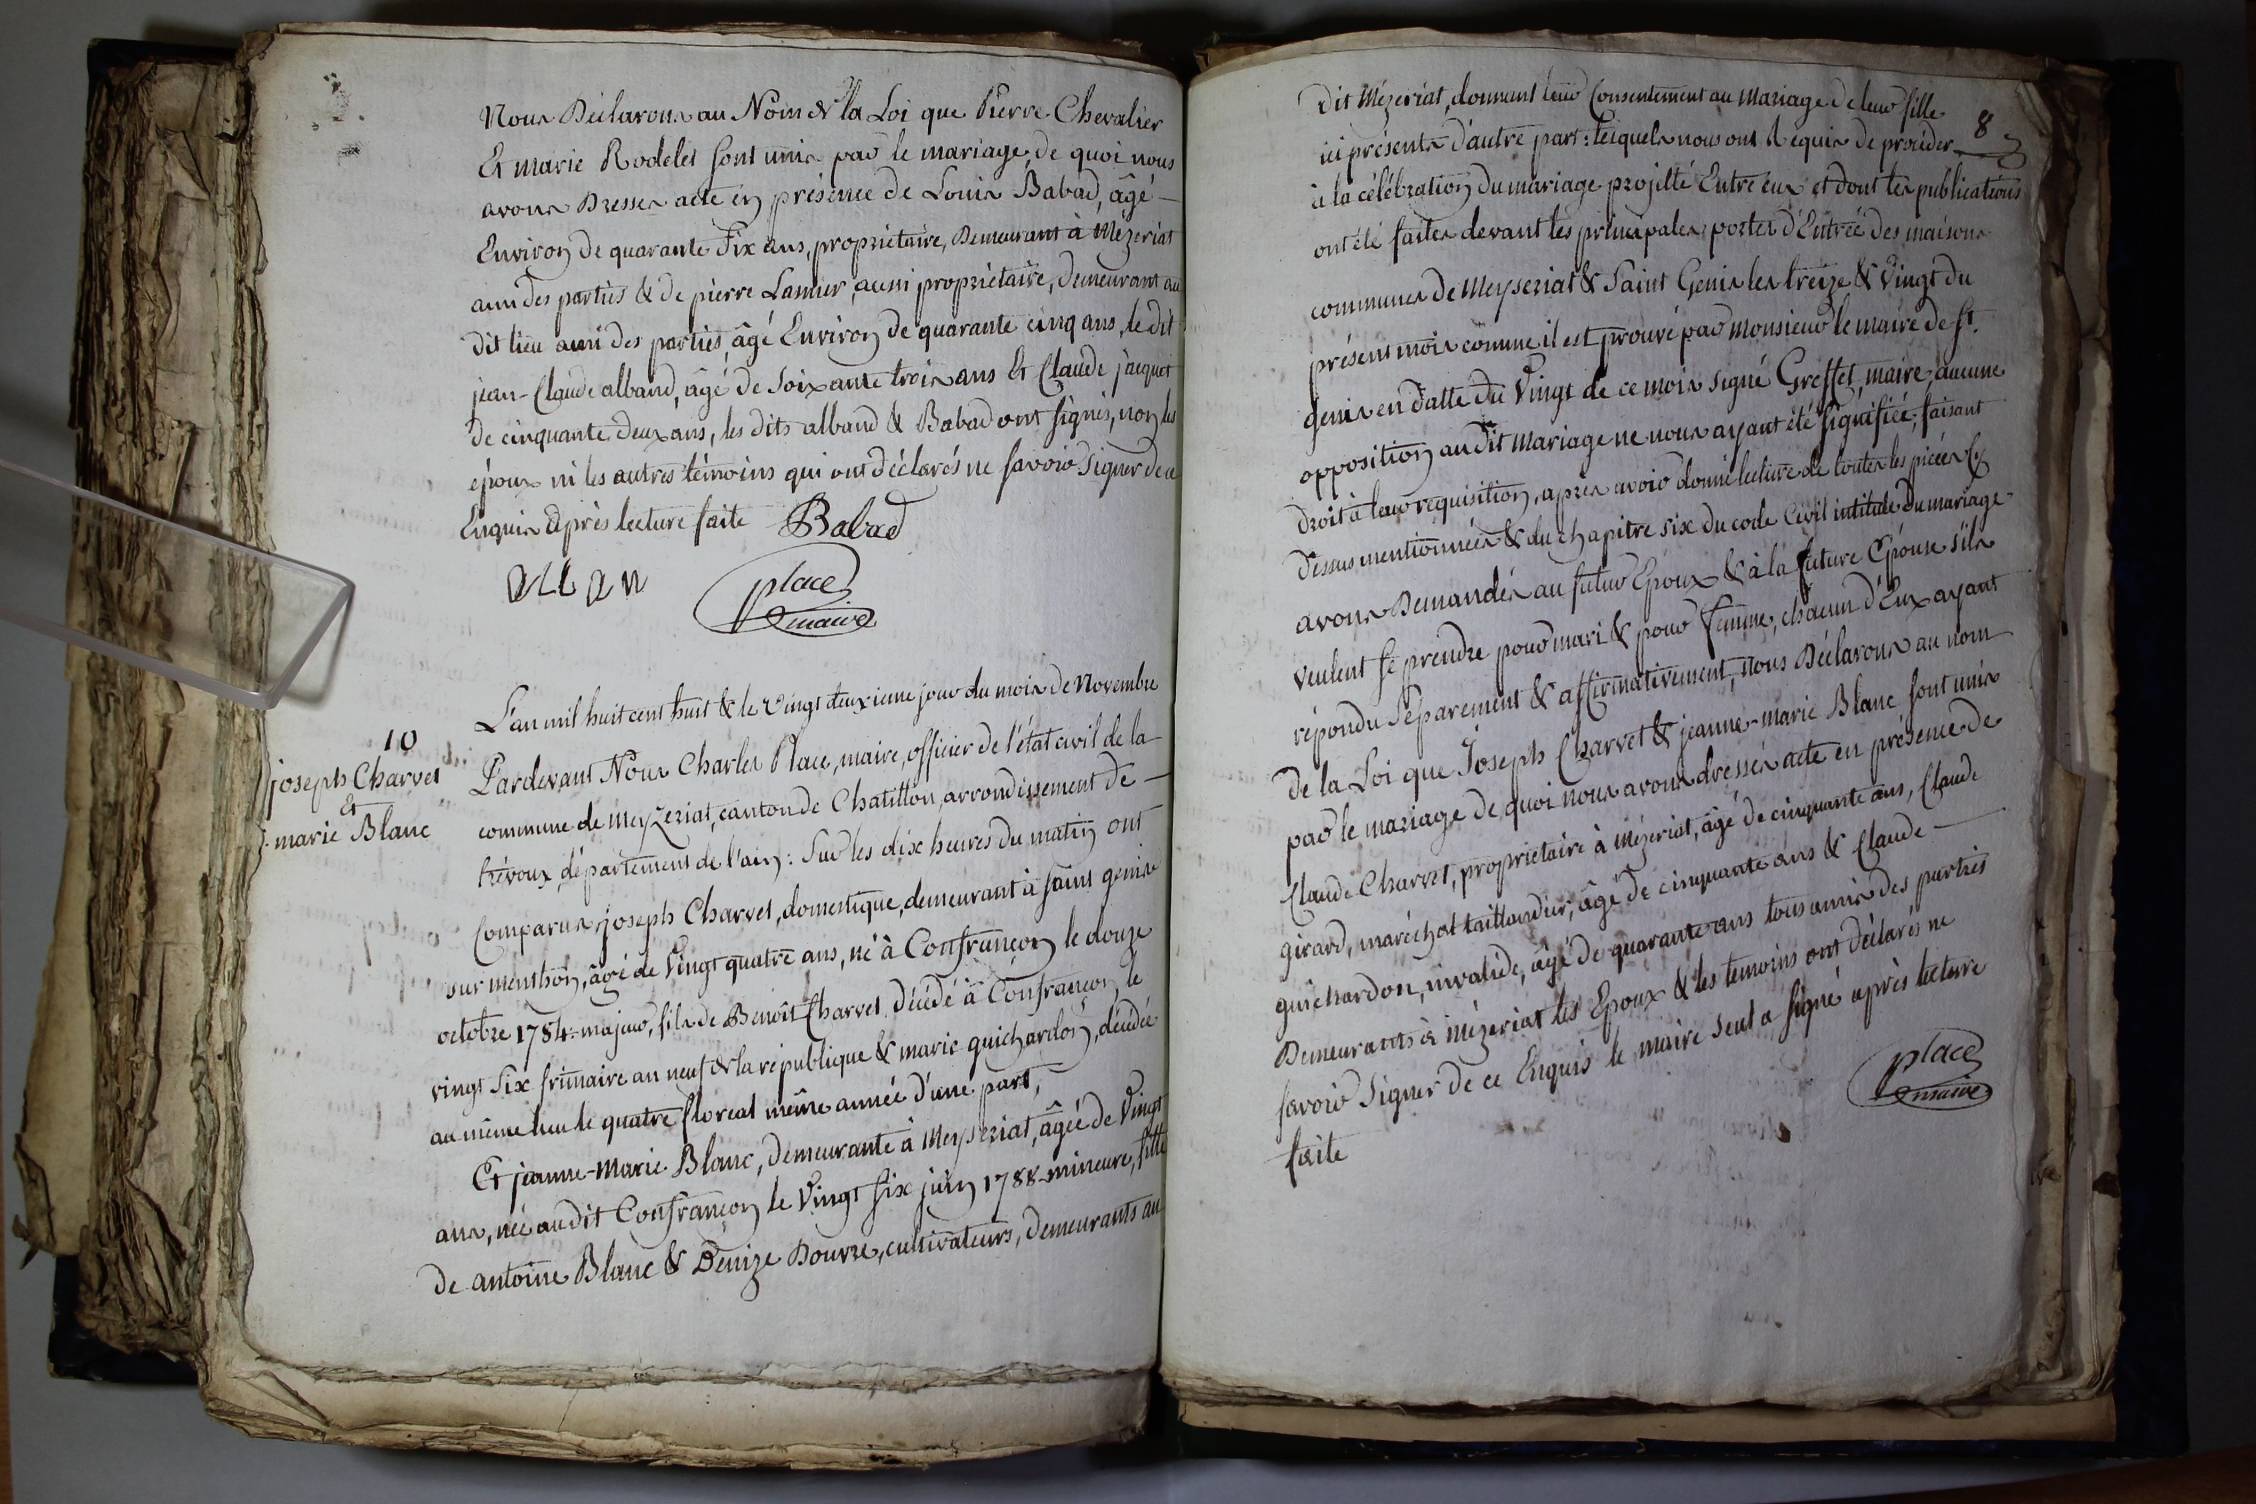 Nous Déclarons au Nom de la Loi que Pierre Chevalier
Et marie Rodelet sont unis par le mariage, de quoi nous
avons Dressés acte en présence de Louis Babad, âgé
Environ de quarante Six ans, propriétaire, Demeurant à Mézeriat
ami des parties & de pierre Lanier, aussi propriétaire, demeurant au
dit lieu ami des parties, âgé Environ de quarante cinq ans, le dit
jean-Claude alband, âgé de Soixante trois ans Et Claude jacquet
de cinquante deux ans, les dits alband & Babad ont signés, non les
époux ni les autres témoins qui ont déclarés ne savoir Signer de ce
Enquis après lecture faite Babad
place
maire
10
joseph Charvet
Et
j. marie Blanc
L'an mil huit cent huit & le vingt deuxieme jour du mois de Novembre
Pardevant Nous Charles Place, maire, officier de l'état civil de la
commune de Meyzeriat, canton de Chatillon, arrondissement de
trévoux, département de l'ain : Sur les dix heures du matin ont
Comparus joseph Charvet, domestique, demeurant à saint genis
sur menthon, âgé de Vingt quatre ans, né à Confrançon le douze
octobre 1784. majeur, fils de Benoît Charvet, décédé à Confrançon, le
vingt Six frimaire an neuf de la république & marie guichardon, décédée
au même lieu le quatre floreal même année d'une part,
Et jeanne-Marie Blanc, demeurante à Meyseriat, âgée de Vingt
ans, née au dit Confrançon le Vingt six juin 1788 mineure, fille
de antoine Blanc & Denize Douvre, cultivateurs, demeurants au
8
dit Mézeriat, donnant leur Consentement au Mariage de leur fille
ici présents d'autre part : lesquels nous ont Requis de procéder
à la célébration du mariage projetté Entre eux et dont les publications
ont été faites devant les principales portes d'Entrée des maisons
communes de Meyseriat & Saint Genis les treize & Vingt du
présent mois comme il est prouvé par Monsieur le maire de St.
Genis en datte du Vingt de ce mois signé Greffet, maire, aucune
opposition au dit Mariage ne nous ayant été signifiée, faisant
Droit à leur requisition, après avoir donné lecture de toutes les pièces Cy
dessus mentionnées & du chapitre six du code Civil intitulé Du mariage
avons Demandés au futur Epoux & à la future Epouse s'ils
veulent se prendre pour mari & pour femme, chacun d'Eux ayant
répondu Séparement & affirmativement, nous Déclarons au nom
de la Loi que Joseph Charvet & jeanne-marie Blanc sont unis
par le mariage de quoi nous avons dressés acte en présence de
Claude Charvet, propriétaire à Mézeriat, âgé de cinquante ans, Claude
girard, maréchal taillandier, âgé de cinquante ans & Claude
guichardon, invalide, âgé de quarante ans tous amis des parties
Demeurants à Mézeriat les Epoux & les temoins ont déclarés ne
savoir Signer de ce Enquis le maire seul a signé après lecture
faite
place
maire